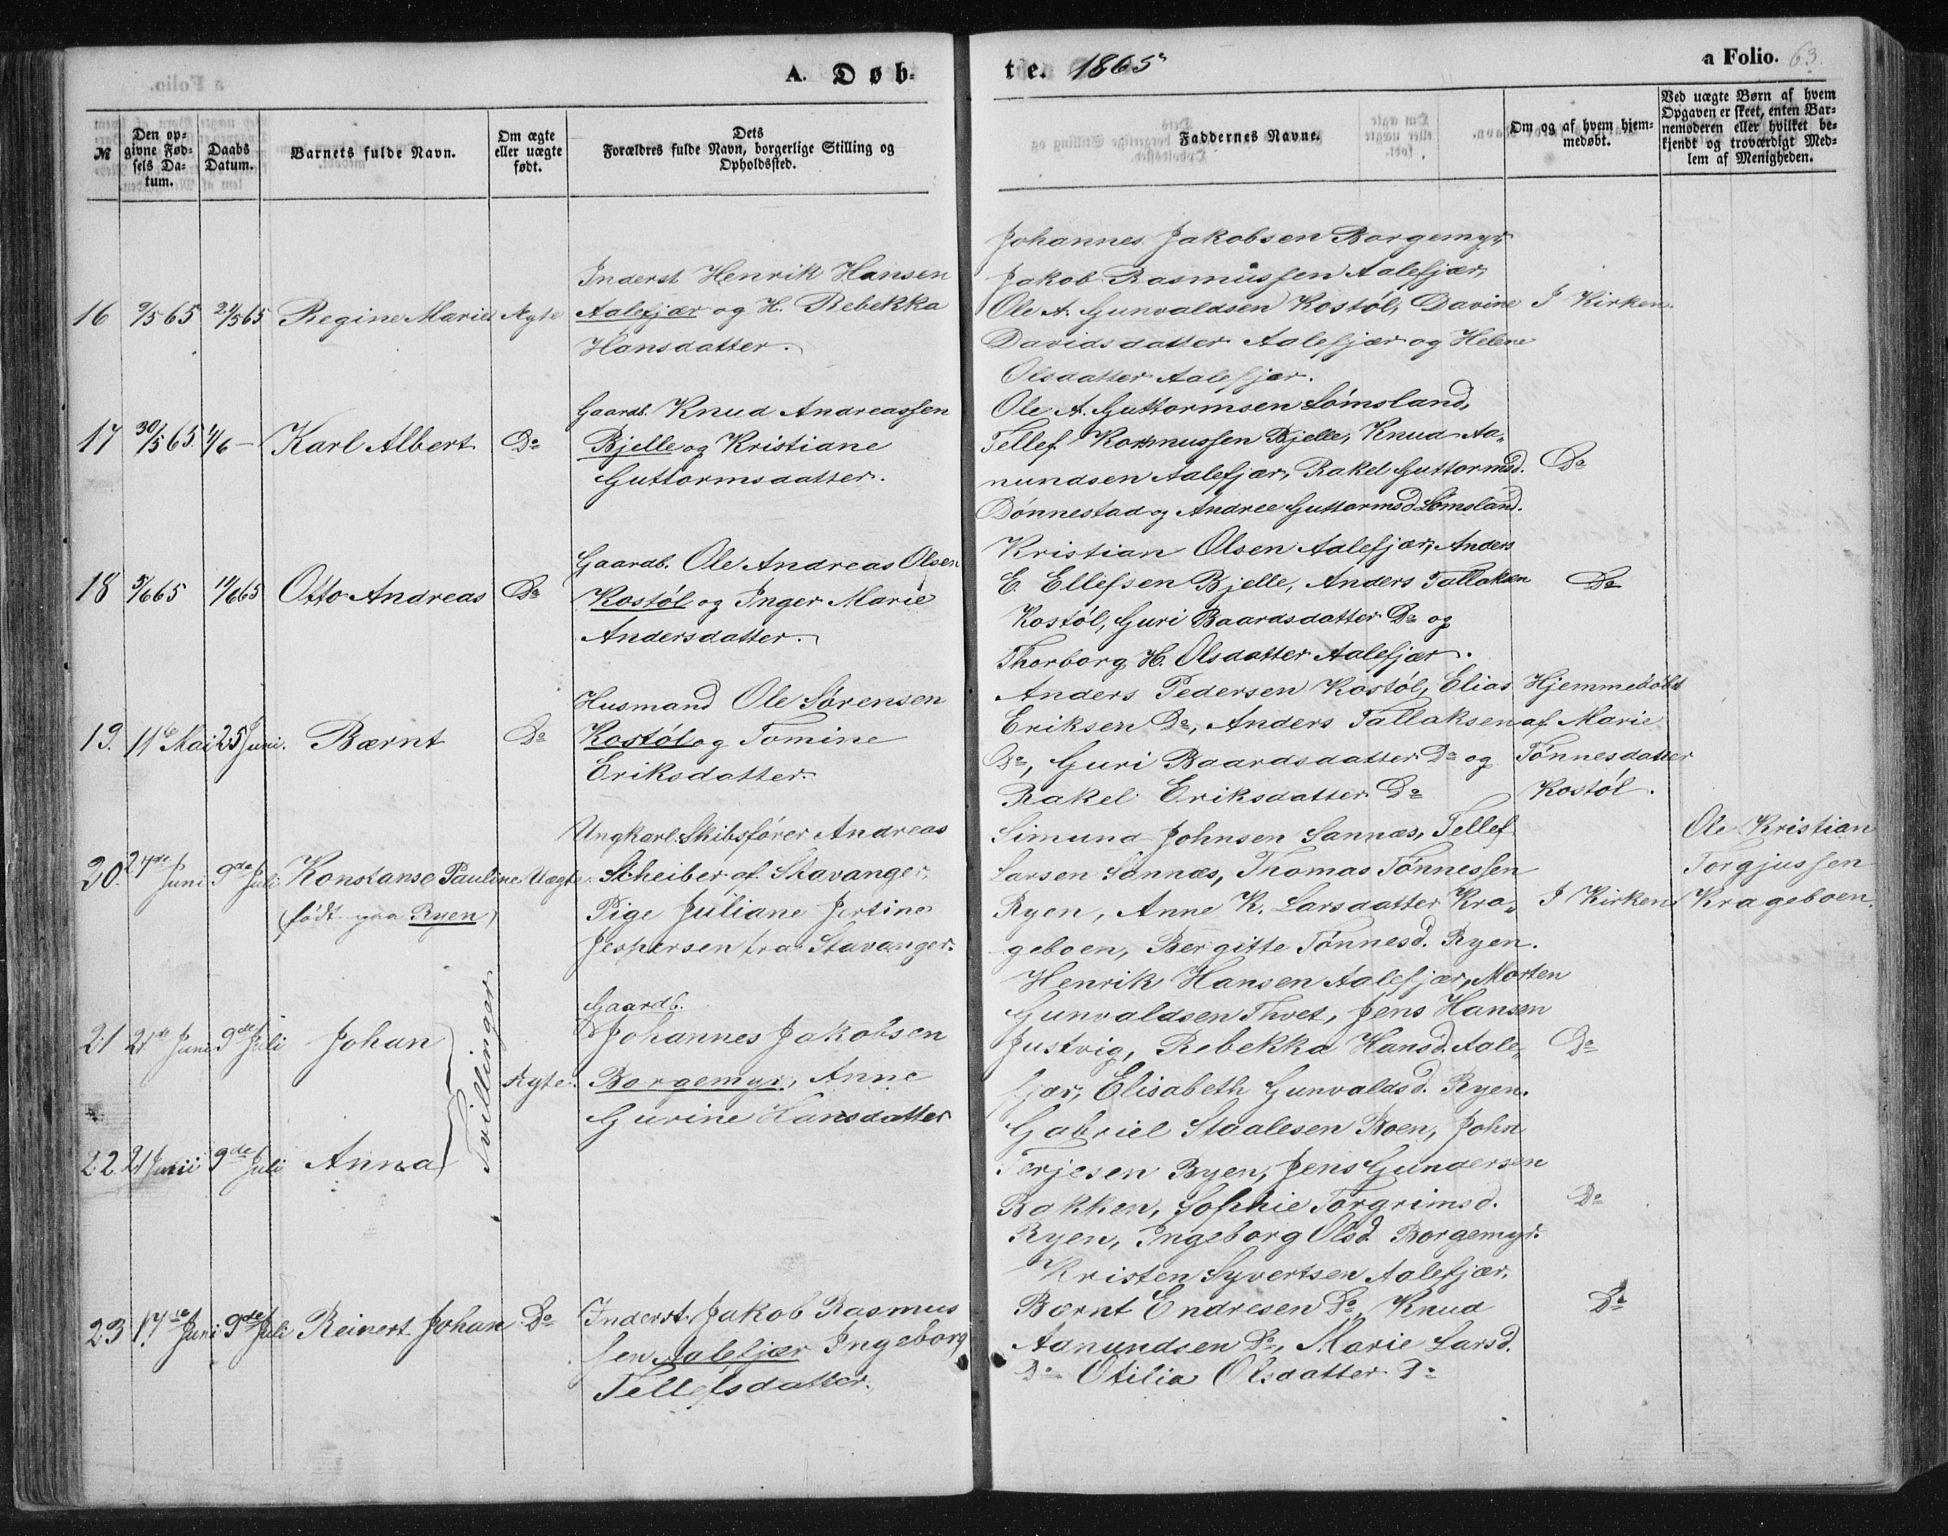 A. Døb-
te. 1865
a Folio. 63.
№
Den op-
givne Fød-
sels Da-
tum.
Daabs
Datum.
Barnets fulde Navn.
Om ægte
eller uægte
født.
Dets
Forældres fulde Navn, borgerlige Stilling og
Opholdssted.
Faddernes Navne.
Om og af hvem hjem-
medøbt.
Ved uægte Børn af hvem
Opgaven er skeet, enten Bar-
nemoderen eller hvilket be-
kjendt og troværdigt Med-
lem af Menigheden.
16 9/5 65 21/5 65 Regine Marie Ægte
Inderst Henrik Hansen
Aalefjær og H. Rebekka
Hansdatter.
Johannes Jakobsen Borgemyr,
Jakob Rasmussen Aalefjær,
Ole A. Gunvaldsen Kostøl, Davine
Davidsdatter Aalefjær og Helene
Olsdatter Aalefjær.
I Kirken.
17 30/5 65 4/6 — Karl Albert Do
Gaardb. Knud Andreassen
Bjelle og Kristiane
Guttormsdatter.
Ole A. Guttormsen Sømsland,
Tellef Rasmussen Bjelle, Knud Aa-
nundsen Aalefjær, Rakel Guttormsd.
Dønnestad og Andree Guttormsd Sømsland.
Do
18 5/6 65 11/6 65 Otto Andreas Do
Gaardb. Ole Andreas Olsen
Kostøl og Inger Marie
Andersdatter.
Kristian Olsen Aalefjær, Anders
E. Ellefsen Bjelle, Anders Tallaksen
Kostøl, Guri Baardsdatter Do og
Thorborg H. Olsdatter Aalefjær.
Do
19. 11te Mai 25 Juni. Bærnt Do
Husmand Ole Sørensen
Kostøl og Tomine
Eriksdatter.
Anders Pedersen Kostøl, Elias
Eriksen Do, Anders Tallaksen
Do, Guri Baardsdatter Do og
Rakel Eriksdatter Do
Hjemmedøbt
af Marie
Tønnesdatter
Kostøl.
20. 24de Juni 9de Juli Konstanse Pauline Uægte.
(født paa Ryen)
Ungkarl Skibsfører Andreas
Scheiber af Stavanger,
Pige Juliane Jertine
Jespersen fra Stavanger.
Simund Johnsen Sannæs, Tellef
Larsen Sannæs, Thomas Tønnessen
Ryen, Anne K. Larsdatter Kra-
geboen, Bergitte Tønnesd. Ryen.
I Kirken
Ole Kristian
Torgjussen
Krageboen.
21 21de Juni 9de Juli Johan
Tvillinger
Ægte.
Gaardb.
Johannes Jakobsen
Borgemyr, Anne
Gurine Hansdatter
Henrik Hansen Aalefjær, Morten
Gunvaldsen Thvet, Jens Hansen
Justvig, Rebekka Hansd. Aale-
fjær, Elisabeth Gunvaldsd. Ryen.
Do
22. 21 Juni 9de Juli Anna
Gabriel Staalesen Boen, John
Terjesen Ryen, Jens Gundersen
Bakken, Sophie Torgrimsd.
Ryen, Ingeborg Olsd Borgemyr.
Do
23 17de Juni 9de Juli Reinert Johan Do
Inderst Jakob Rasmus
sen Aalefjær Ingeborg
Tellefsdatter.
Kristen Syvertsen Aalefjær,
Bærnt Endresen Do, Knud
Aanundsen Do, Marie Larsd.
Do Otilia Olsdatter Do
Do